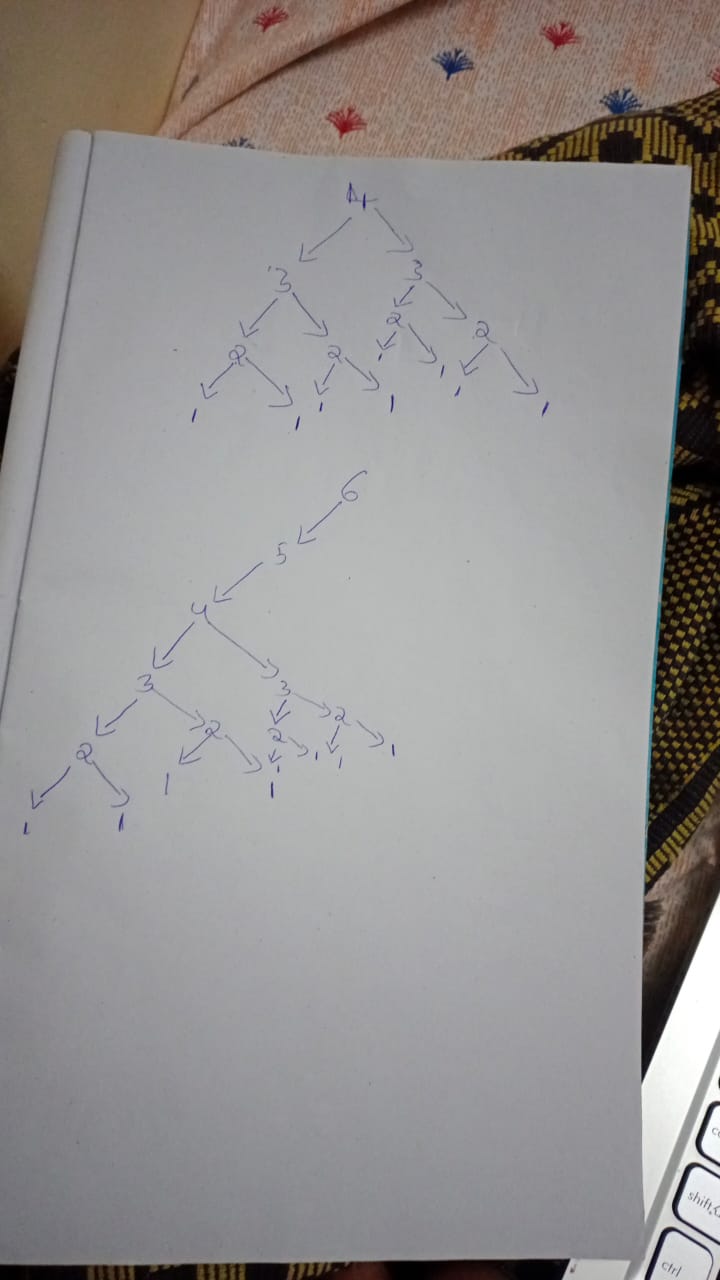 4
3 3
2 2 2 2
1 1 1 1 1 1 1 1
6
5
4
3 3
2 2 2 2
1 1 1 1 1 1 1 1
shift
ctrl